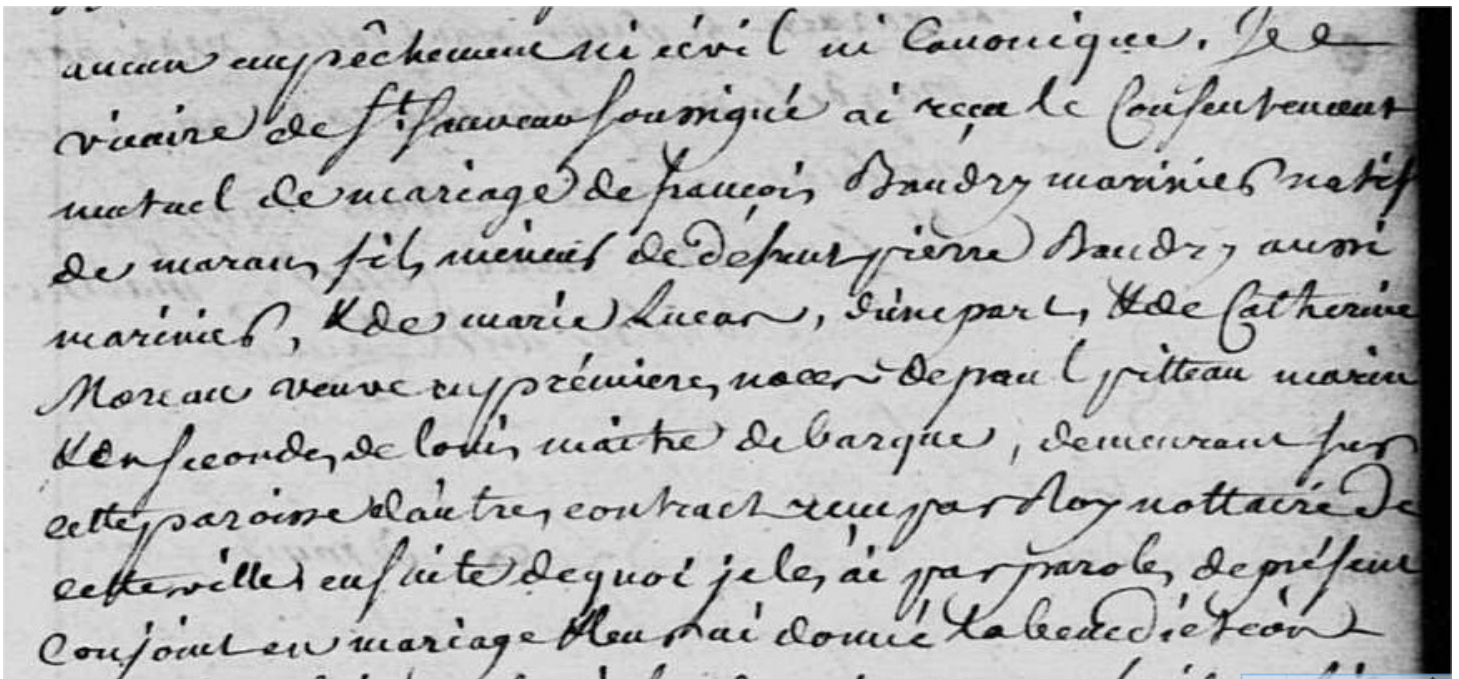 aucun empêchement ni civil ni Canonique. Je
vicaire de St. Sauveur soussigné ai reçu le Consentement
mutuel de mariage de françois Baudry marinier natif
de marans fils mineur de défunt pierre Baudry aussi
marinier, & de marie Lucas, d'une part, & de Catherine
Moreau veuve en prémieres noces de paul pitteau marin
& en secondes de louis maitre de barque, demeurant sur
cette paroisse d'autre, contract reçu par Roy nottaire de
cette ville ensuite de quoi je les ai par paroles de présent
Conjoint en mariage & leur ai donné la benediction